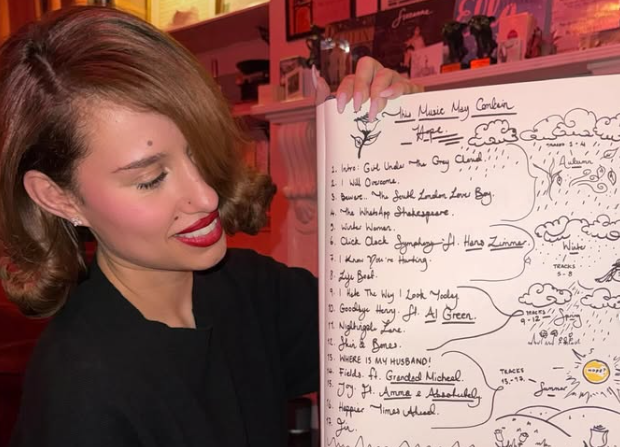 This Music May Contain
Hope.
1. Intro: Girl Under The Grey Cloud.
2. I Will Overcome.
3. Beware.. The South London Lover Boy.
4. The WhatsApp Shakespeare.
5. Winter Woman.
6. Click Clack Symphony ft. Hans Zimmer
7. I Know You're Hurting.
8. Life Boat.
9. I Hate The Way I Look Today
10. Goodbye Henry. ft. Al Green.
11. Nightingale Lane.
12. Skin & Bones.
13. WHERE IS MY HUSBAND!
14. Fields. ft. Grandad Micheal.
15. Joy. ft. Amma & Absolutely.
16. Happier Times Ahead.
17. Fin.
TRACKS 1-4
Autumn
Winter
TRACKS
5-8
TRACKS
9-12
Spring
TRACKS
13-17
Summer